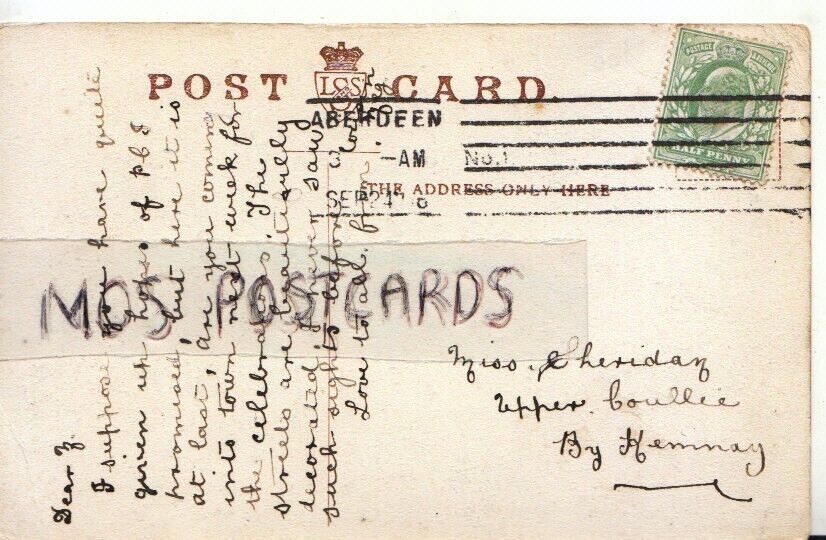 POST CARD
L&S
ABERDEEN
3 -AM No.1
SEP 24
THE ADDRESS ONLY HERE
POSTAGE
HALF PENNY
MOS POSTCARDS
Dear
I suppose you have quite
given up hopes of
promised but here it is
at last. Are you coming
into town next week for
the celebrations. The
streets are beautifully
decorated I never saw
such sights before.
Love to all from
Miss. Sheridan
Upper. Coullie
By Kemnay